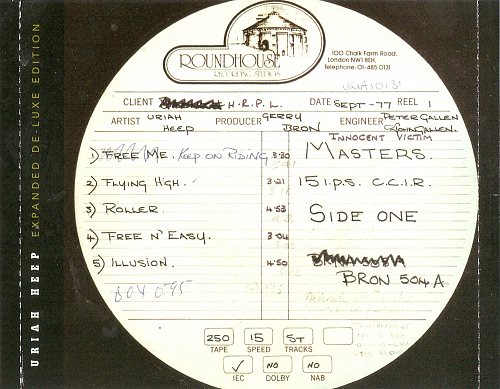 URIAH HEEP EXPANDED DE-LUXE EDITION
ROUNDHOUSE
RECORDING STUDIOS
100 Chalk Farm Road,
London NW1 8EH,
Telephone: 01-485 0131
URIA10131
CLIENT H.R.P.L. DATE SEPT-77 REEL 1
ARTIST URIAH HEEP PRODUCER GERRY BRON ENGINEER PETER GALLEN
INNOCENT VICTIM
1) FREE ME. KEEP ON RIDING 3:30
MASTERS.
2) FLYING HIGH. 3:21
15 I.P.S. C.C.I.R.
3) ROLLER. 4:53
SIDE ONE
4) FREE N' EASY. 3:04
5) ILLUSION. 4:50
BRON 504 A
BOX 0595
250 15 ST
TAPE SPEED TRACKS
✓ NO NO
IEC DOLBY NAB